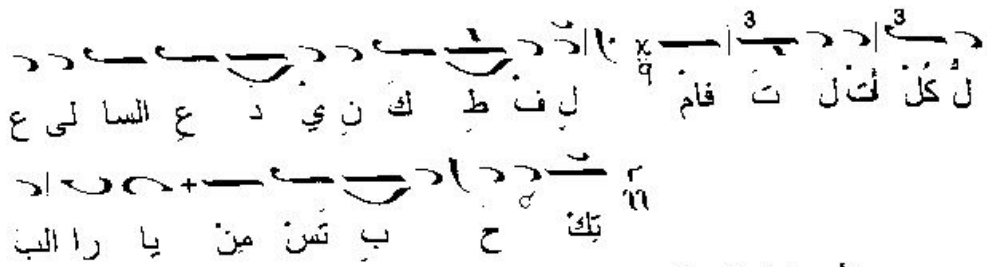 لُّ كُلْ لَتْ لَ تَ فامْ لِ فْ طِ كَ نِ يْ دَ عِ السا لى ع
تِكْ حَ بِ تَسْ مِنْ يا را الب